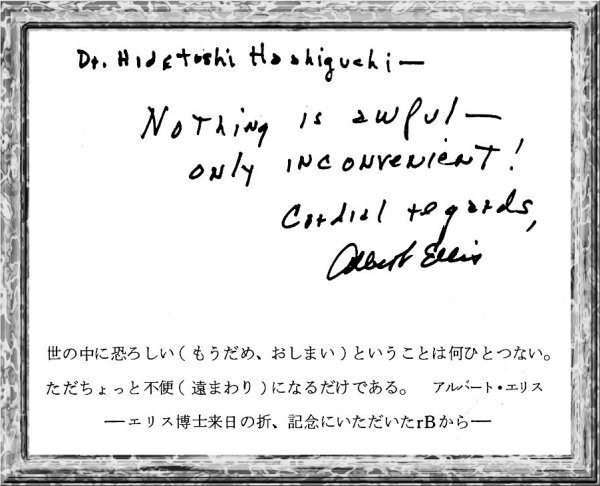 Dr. Hidetoshi Hashiguchi—
Nothing is awful—
only inconvenient!
Cordial regards,
Albert Ellis
世の中に恐ろしい(もうだめ、おしまい)ということは何ひとつない。
ただちょっと不便(遠まわり)になるだけである。 アルバート・エリス
—エリス博士来日の折、記念にいただいたrBから—